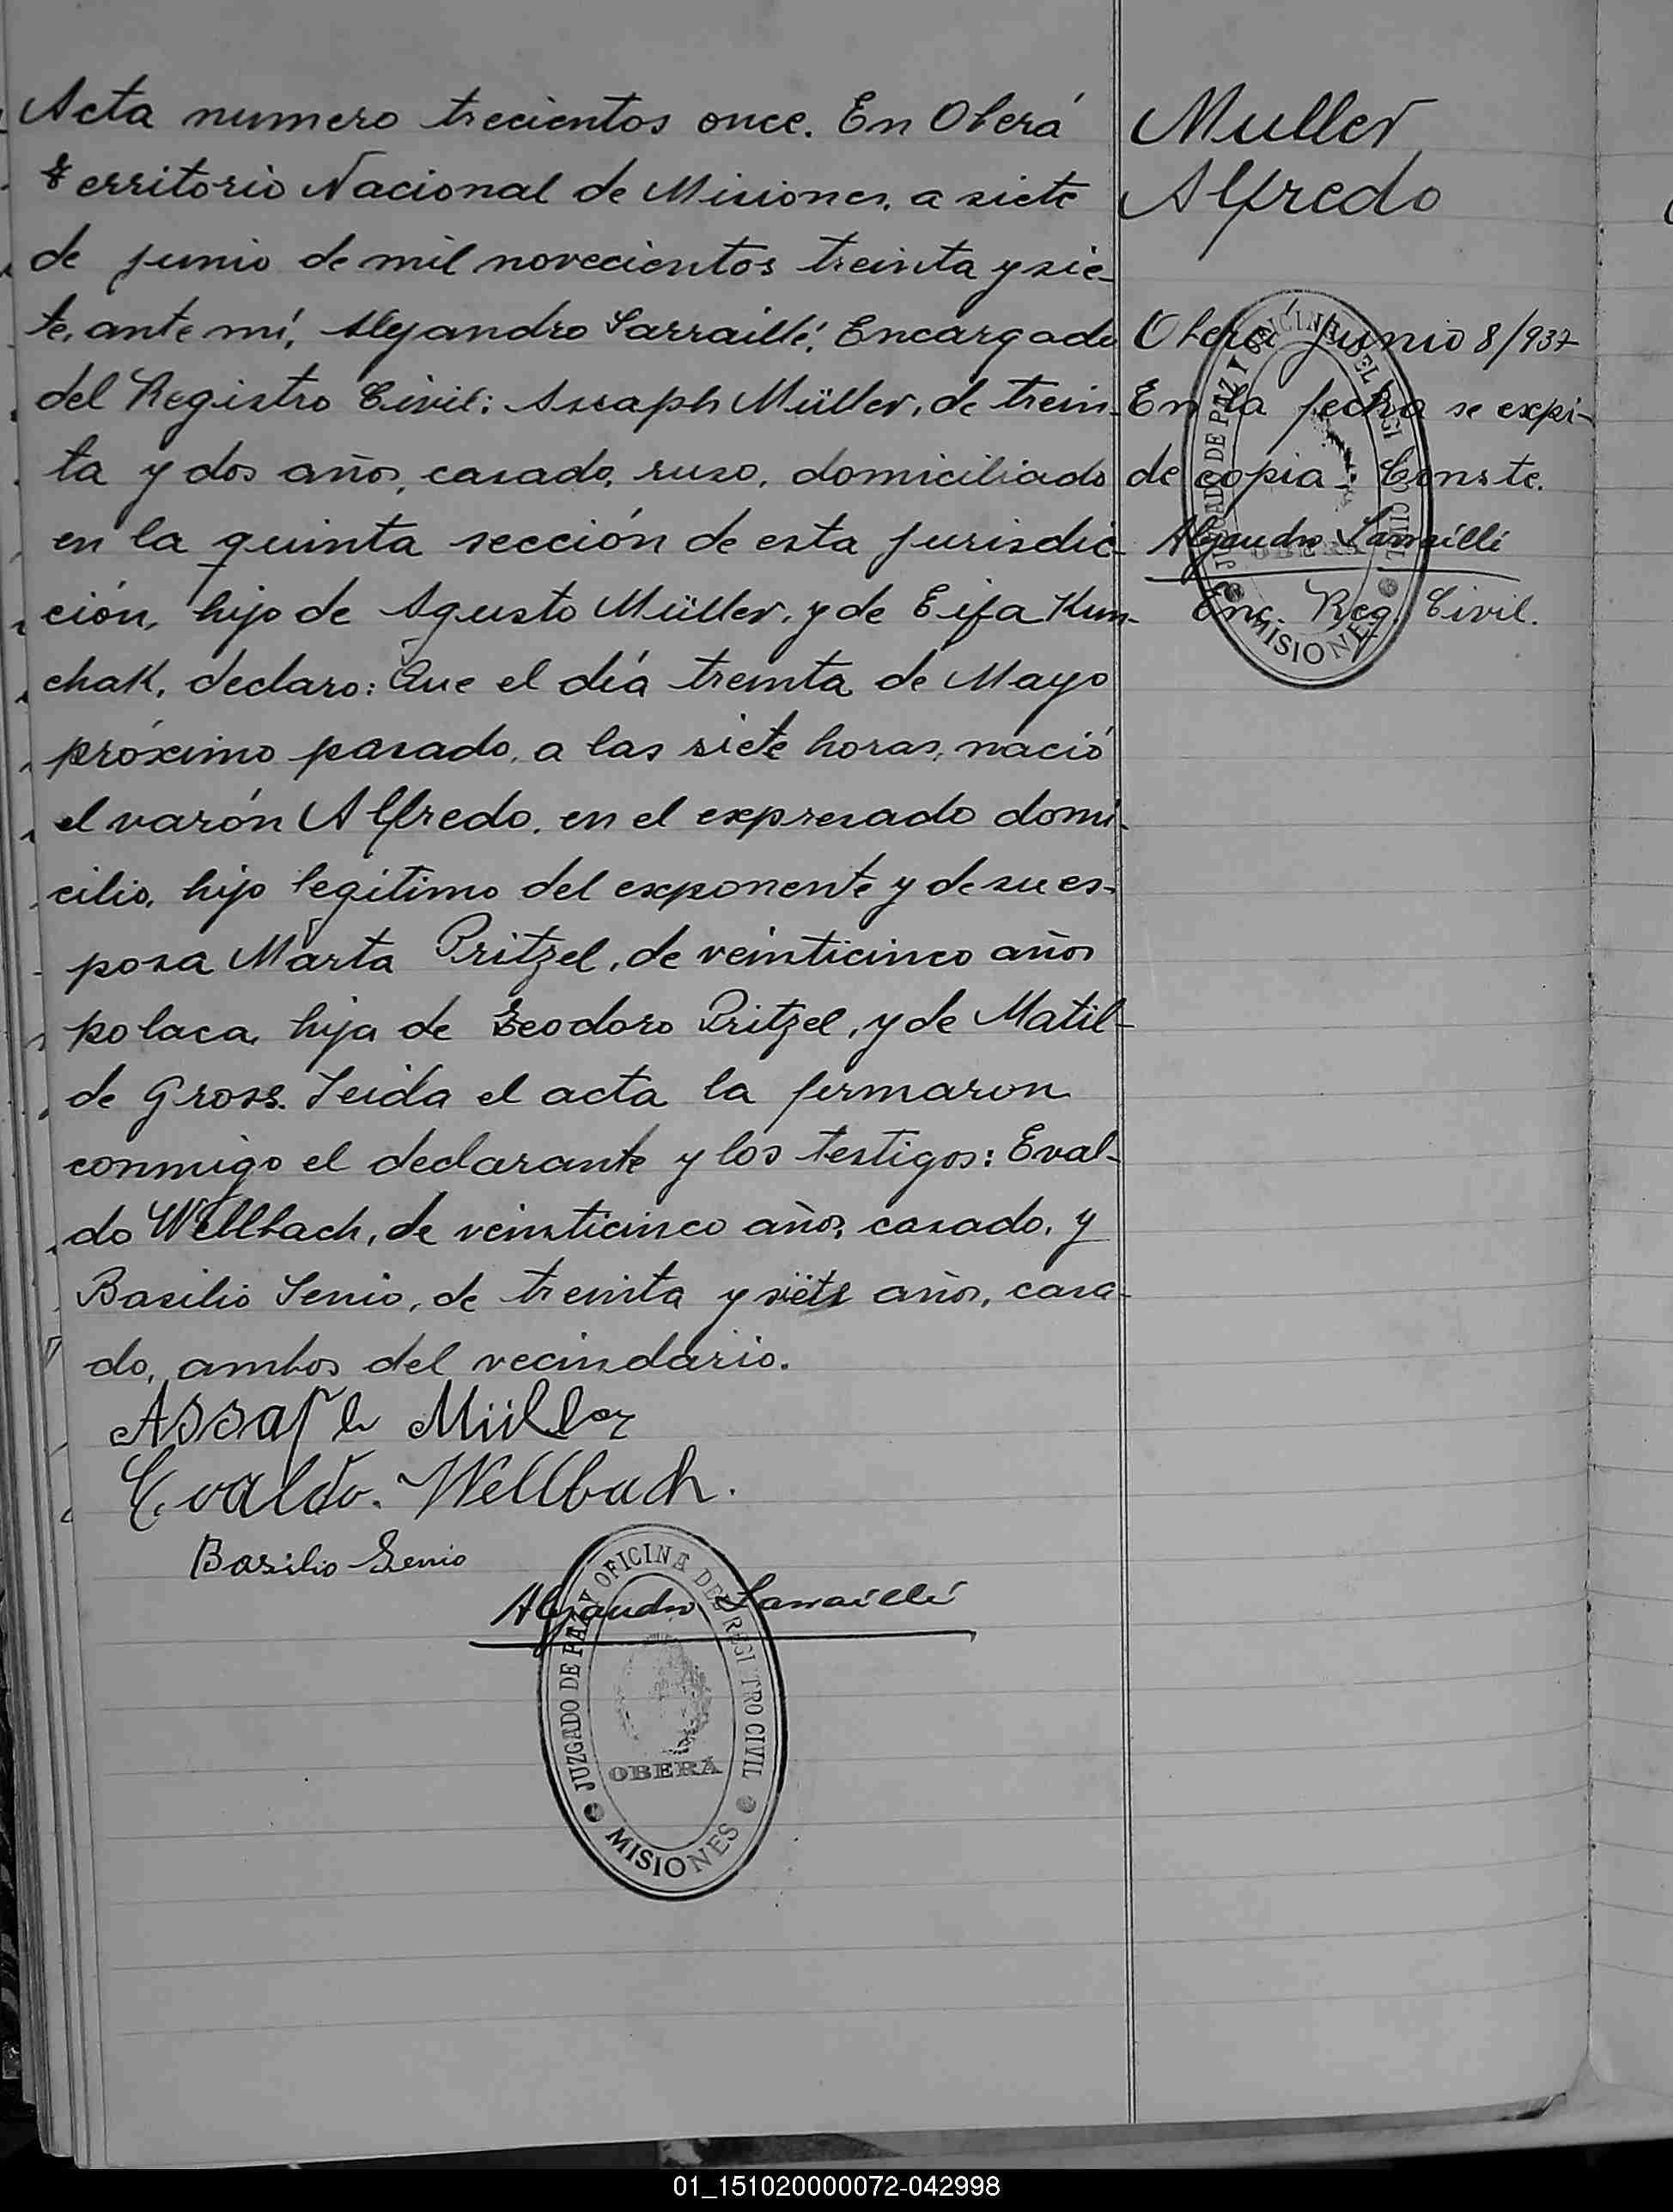 Acta numero trecientos once. En Oberá
territorio Nacional de Misiones, a siete
de junio de mil novecientos treinta y sie-
te, ante mí, Alejandro Sarraillé, Encargado
del Registro Civil: Assaph Müller, de trein-
ta y dos años, casado, ruso, domiciliado
en la quinta sección de esta jurisdic-
ción, hijo de Agusto Müller, y de Eifa Kun-
chak, declaro: Que el día treinta de Mayo
próximo pasado, a las siete horas, nació
el varón Alfredo, en el expresado domi-
cilio, hijo legítimo del exponente y de su es-
posa Marta Pritzel, de veinticinco años
polaca, hija de Teodoro Pritzel, y de Matil-
de Gross. Leida el acta la firmaron
conmigo el declarante y los testigos: Eval-
do Wellbach, de veinticinco años, casado, y
Basilio Senio, de treinta y siete años, casa-
do, ambos del vecindario.
Assaph Müller
Evaldo Wellbach.
Basilio Senio
Alejandro Sarraillé
JUZGADO DE PAZ Y OFICINA DEL REGI TRO CIVIL
OBERA
MISIONES
Muller
Alfredo
Oberá Junio 8/937
En la fecha se expi-
de copia. Conste.
Alejandro Sarraillé
Enc. Reg. Civil.
JUZGADO DE PAZ Y OFICINA DEL REGI TRO CIVIL
OBERA
MISIONES
01_151020000072-042998